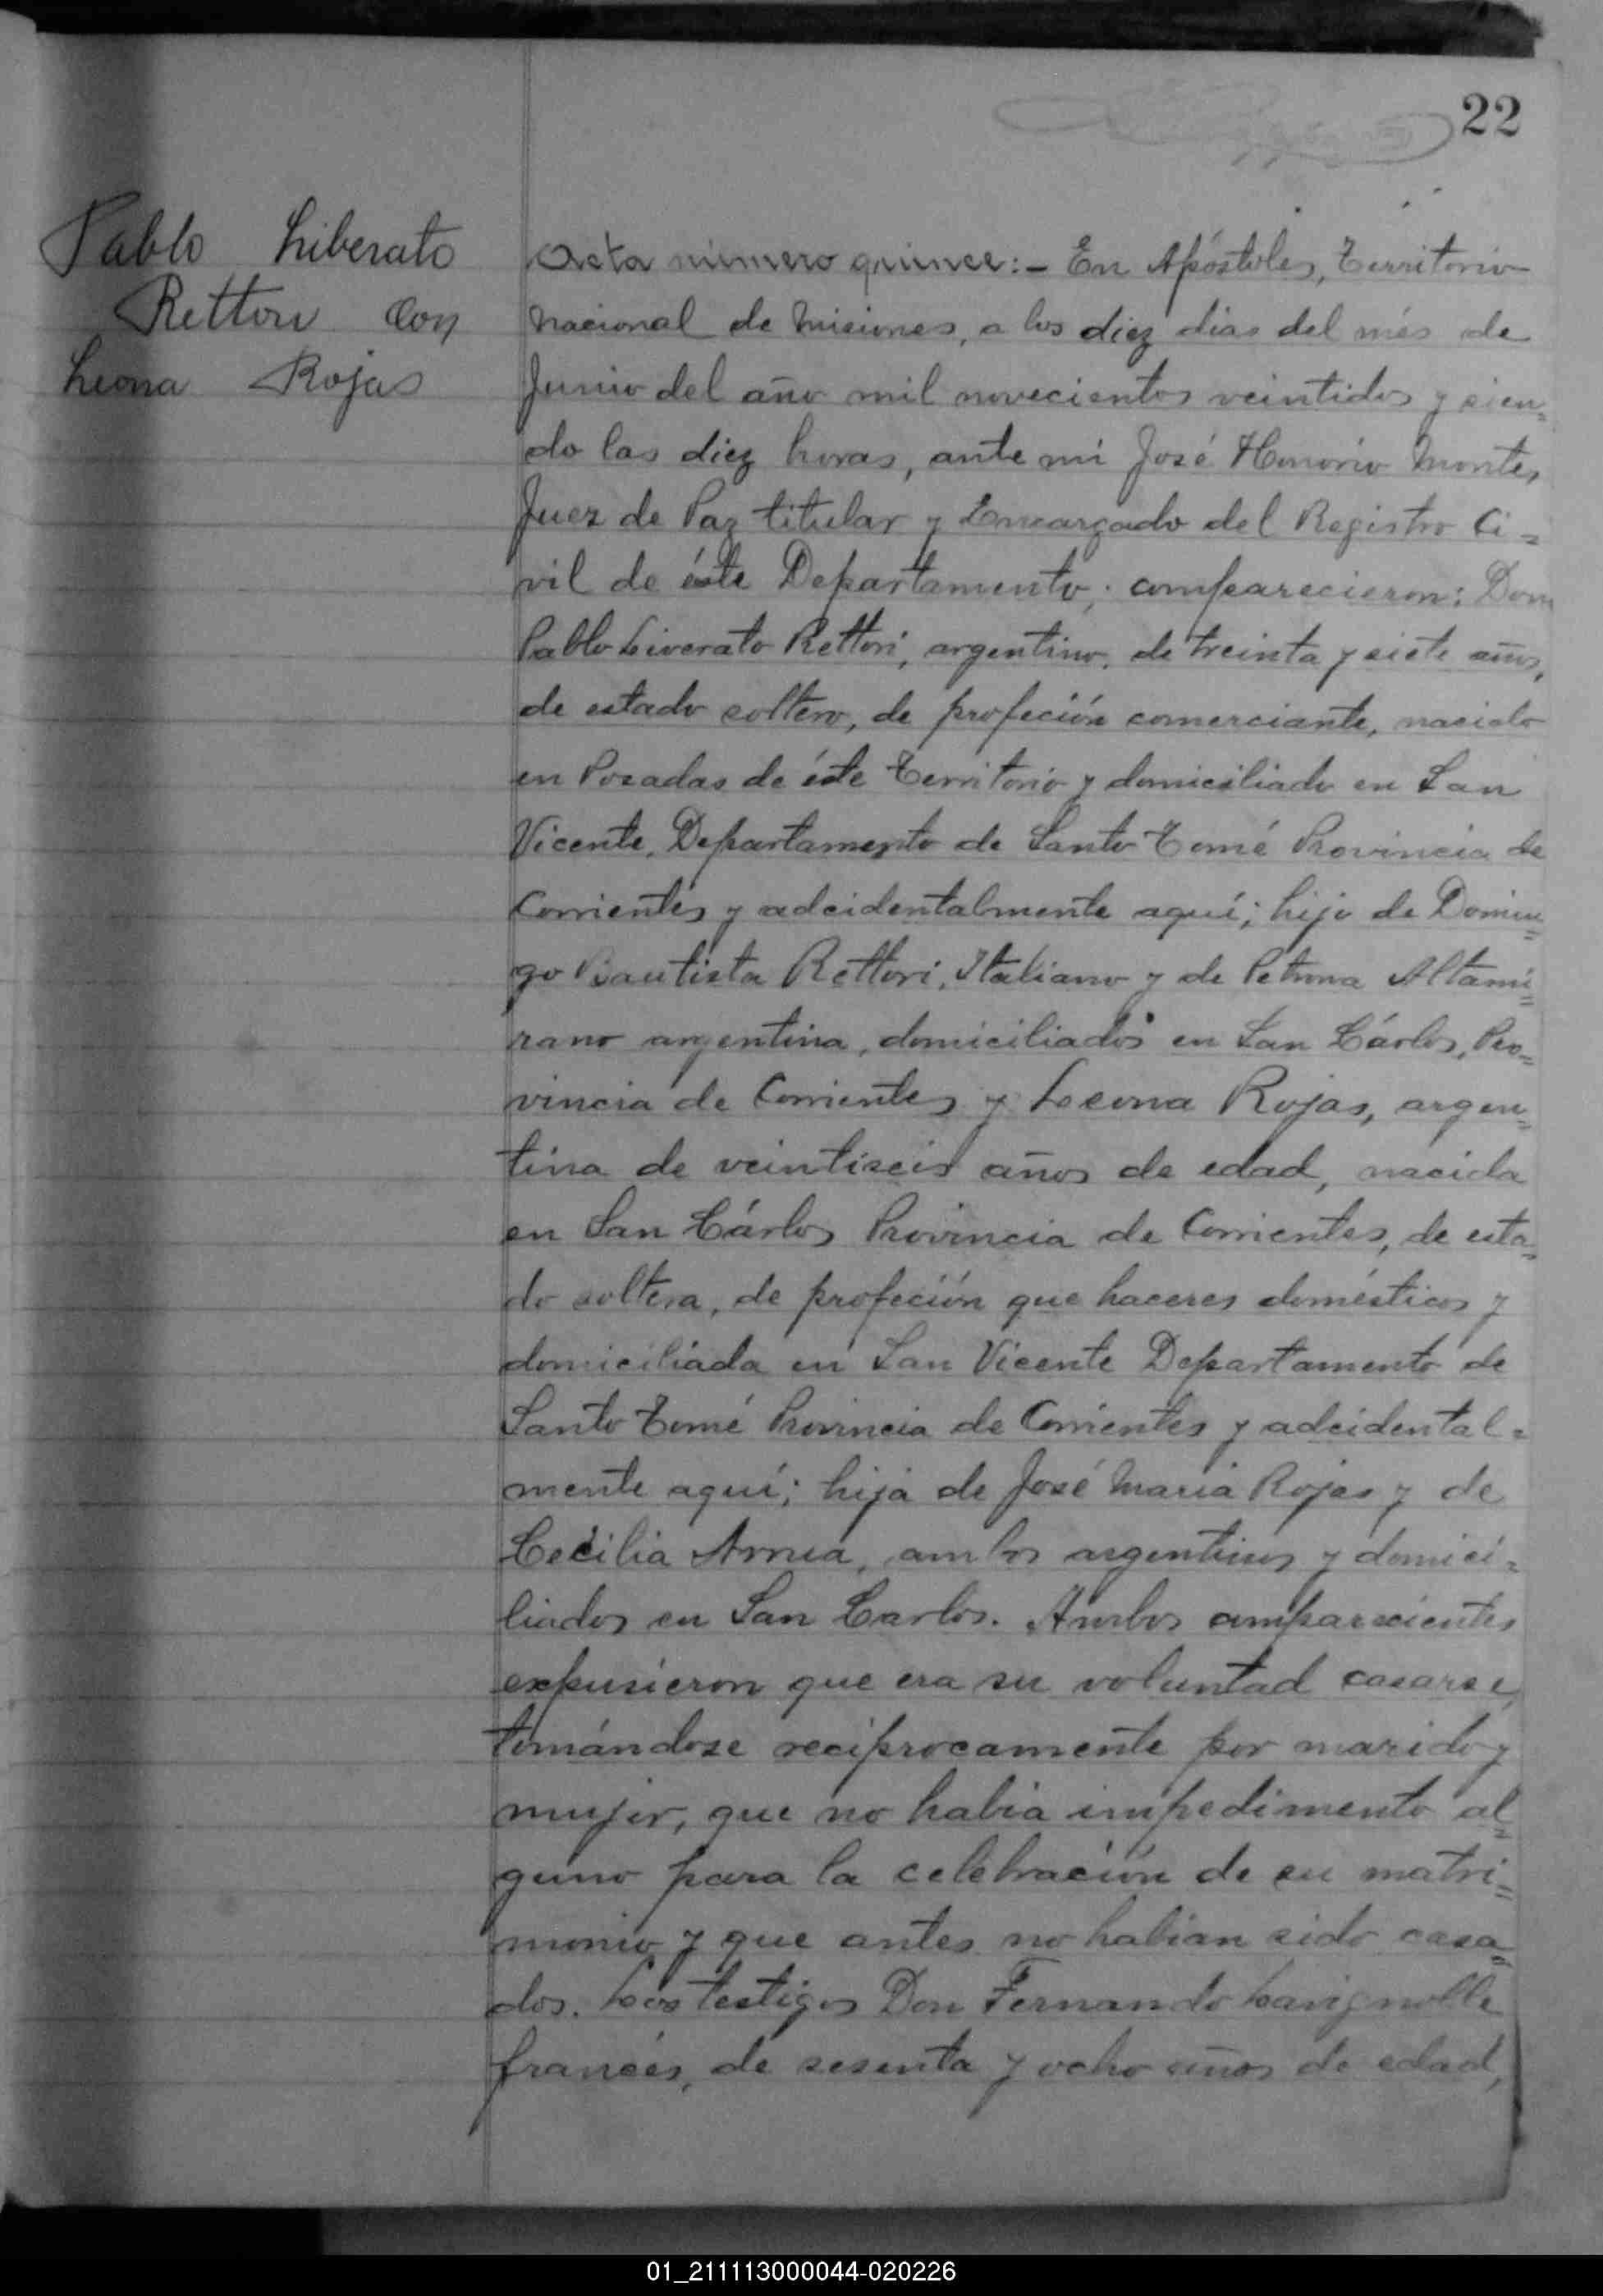 22
Pablo Liberato
Rettori con
Leona Rojas
Acta número quince:- En Apóstoles, Territorio
nacional de Misiones, a los diez dias del més de
Junio del año mil novecientos veintidos y sien=
do las diez horas, ante mi José Honorio Montes,
Juez de Paz titular y Encargado del Registro Ci=
vil de éste Departamento, comparecieron: Don
Pablo Liverato Rettori, argentino, de treinta y siete años,
de estado soltero, de profeción comerciante, nacido
en Posadas de éste Territorio y domiciliado en San
Vicente, Departamento de Santo Tomé Provincia de
Corrientes y adcidentalmente aquí; hijo de Domin=
go Bautista Rettori, Italiano y de Petrona Altami=
rano argentina, domiciliados en San Cárlos, Pro=
vincia de Corrientes y Leona Rojas, argen=
tina de veintiseis años de edad, nacida
en San Cárlos Provincia de Corrientes, de esta=
do soltera, de profeción que haceres domésticos y
domiciliada en San Vicente Departamento de
Santo Tomé Provincia de Corrientes y adcidental=
mente aquí; hija de José Maria Rojas y de
Cecilia, ambos argentinos y domici=
liados en San Carlos. Ambos comparecientes
expusieron que era su voluntad casarse,
tomándose reciprocamente por marido y
mujer, que no habia impedimento al=
guno para la celebración de su matri=
monio y que antes no habian sido casa=
dos. Los testigos Don Fernando Lavignolle
francés, de sesenta y ocho años de edad,
01_211113000044-020226